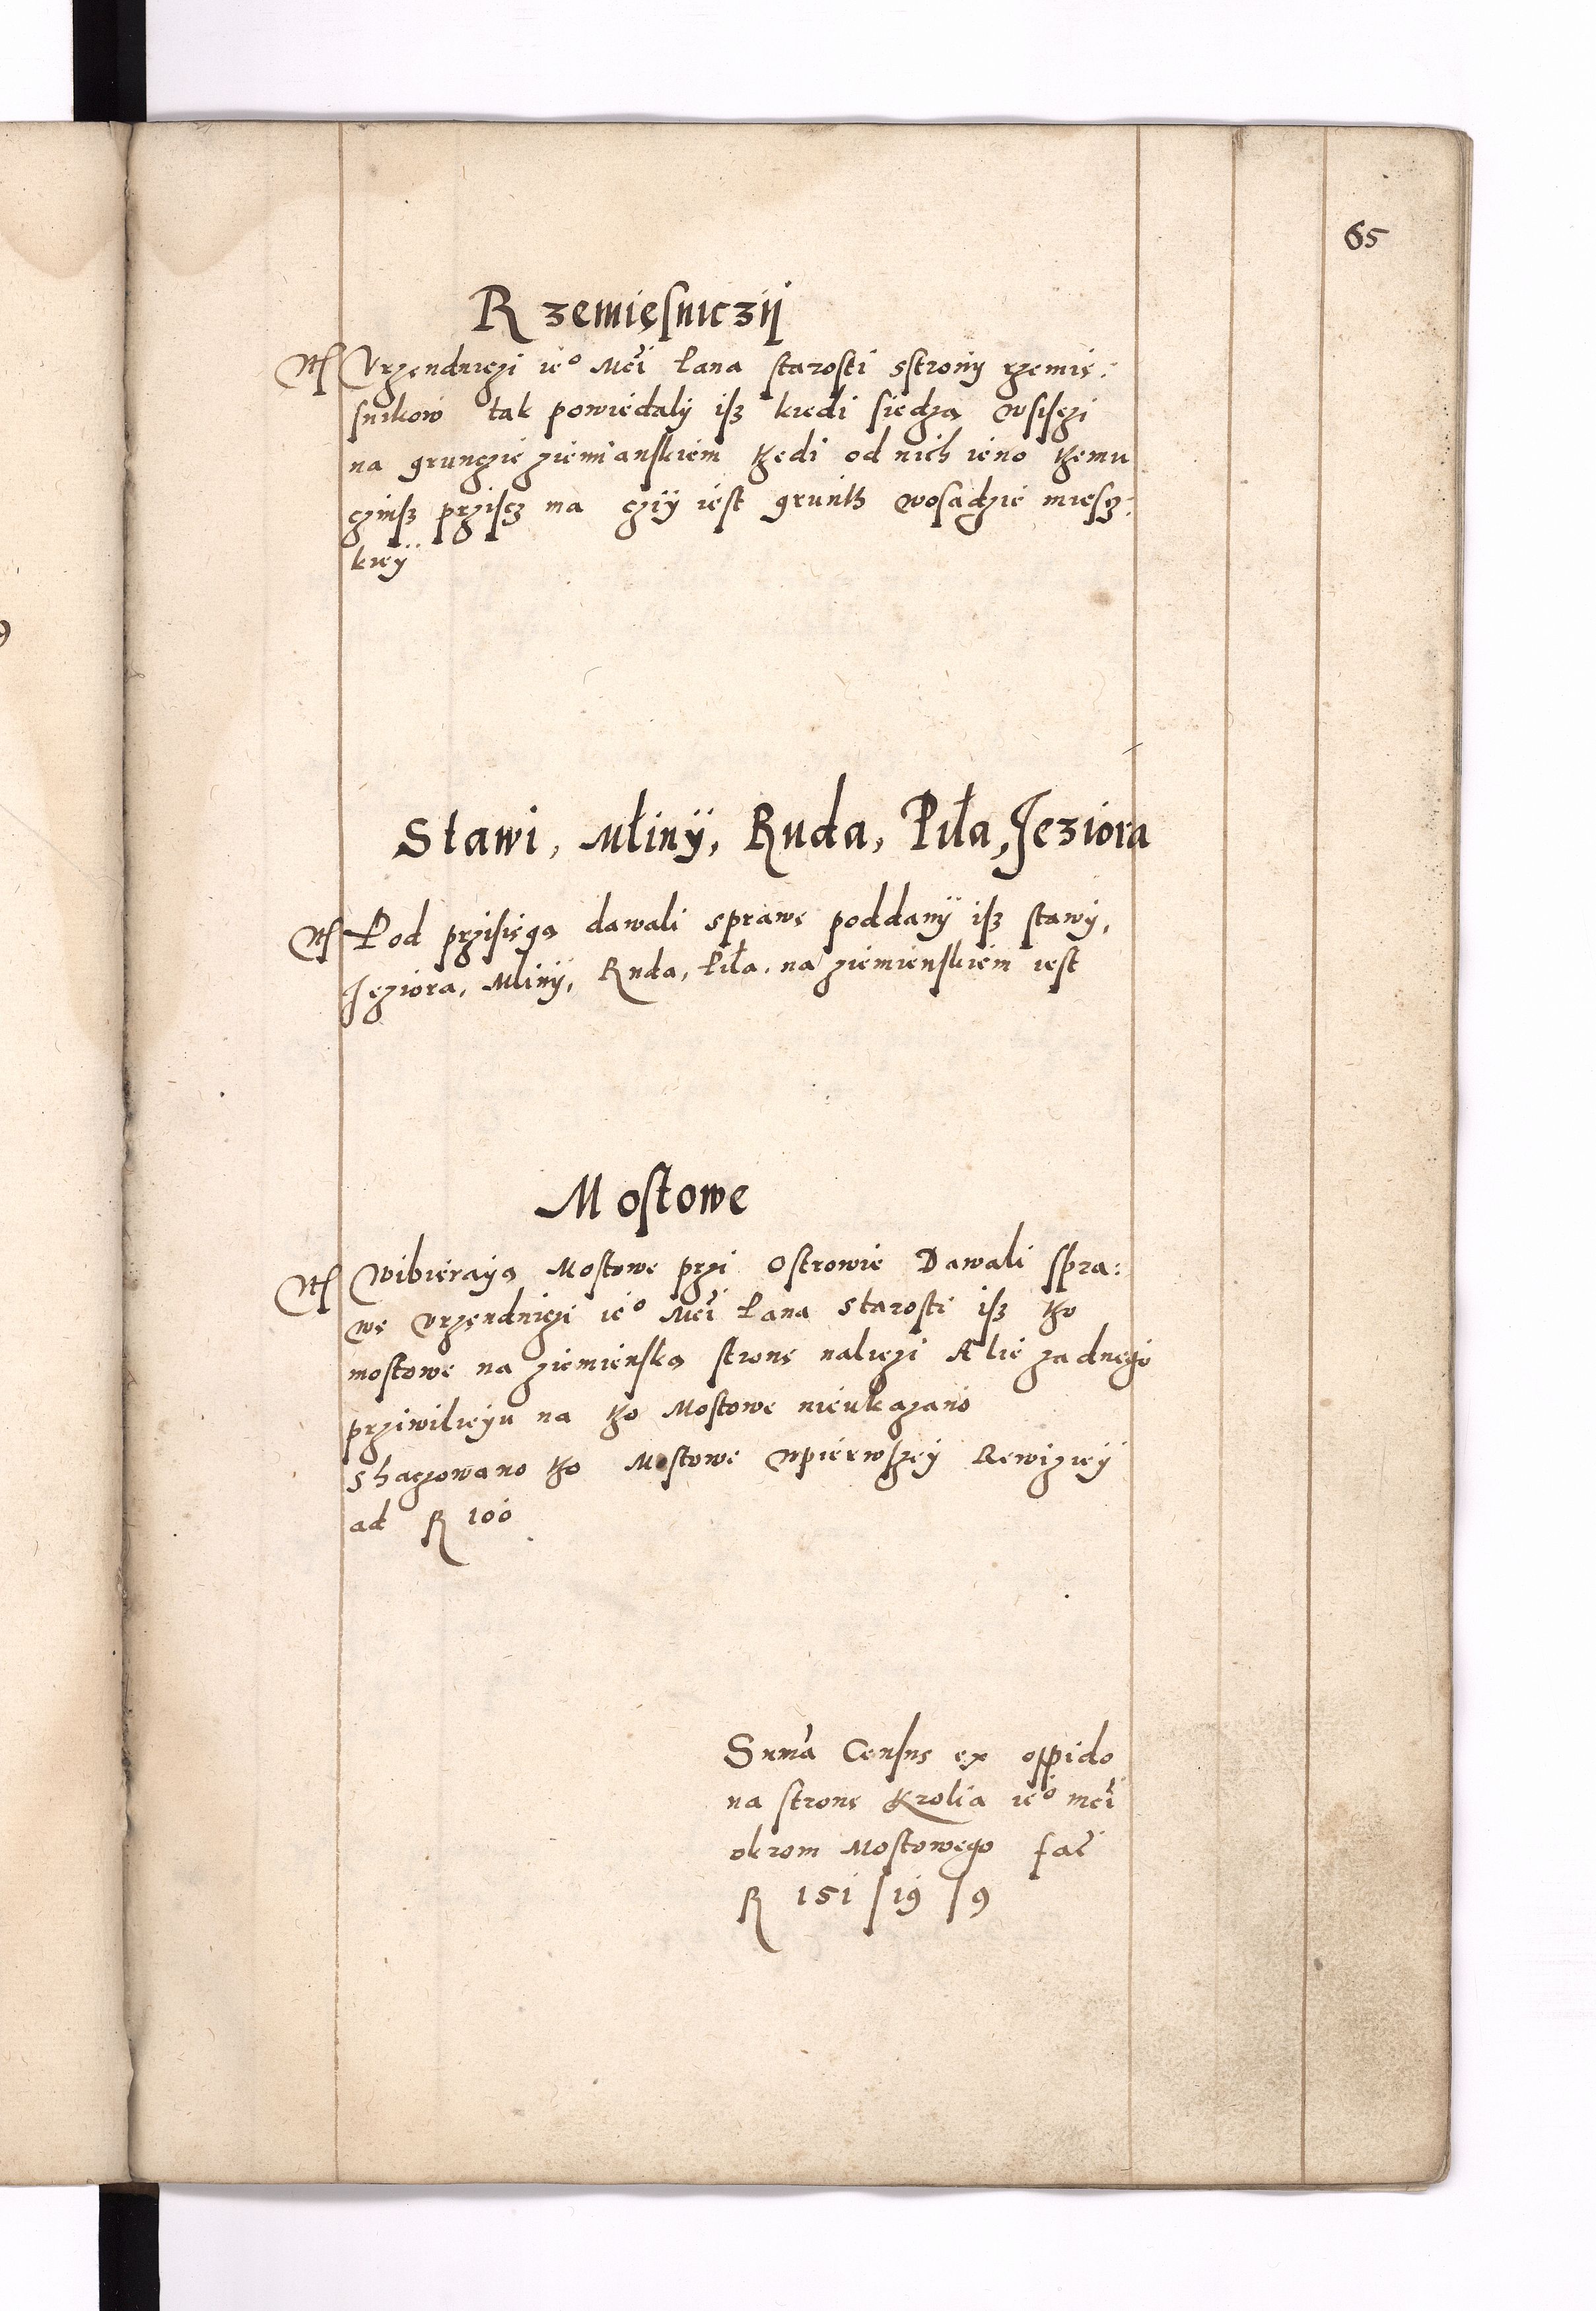 65
Rzemięsniczÿ
Itē Vrzendniczi ieº Mći Pana starosti sstrony rzemię:
snikow tak powiedaly isz kiedi siedzą wsiszczi
na grunczie ziemianskiem tedi od nich ieno temu
czinsz przisz ma cziÿ iest grunth wosadzie miesz:
kieÿ
Stawi, Młinÿ, Ruda, Piła, Jeziora
Itē Pod przisięgą dawali sprawę poddanÿ isz stawy,
Jeziora, Mlinÿ, Ruda, Piła, na ziemienskiem iest
Mostowe
Itē Wibieraią Mostowe przi Ostrowie Dawali spra:
wę vrzendniczi ieº Mći Pana Starosti isz tho
mostowe na ziemienską stronę naliezi Alie zadnego
prziwilieyu na tho Mostowe nieukazano
Shaczowano tho Mostowe wpierwszeÿ Rewizieÿ
ad R 100
Sum̄a Census ex oppido
na stronę Krolia ieº mći
okrom Mostowego faċ
R 151 / 19 / 9